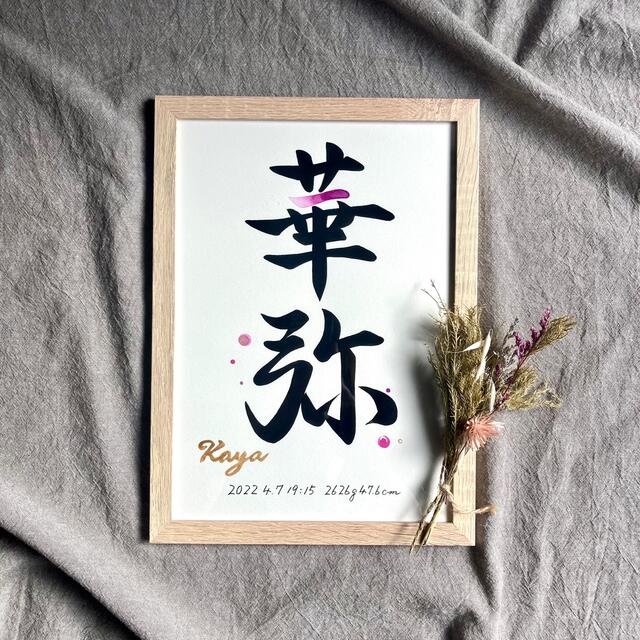 華弥
Kaya
2022 4.7 19:15 2626g 47.6cm